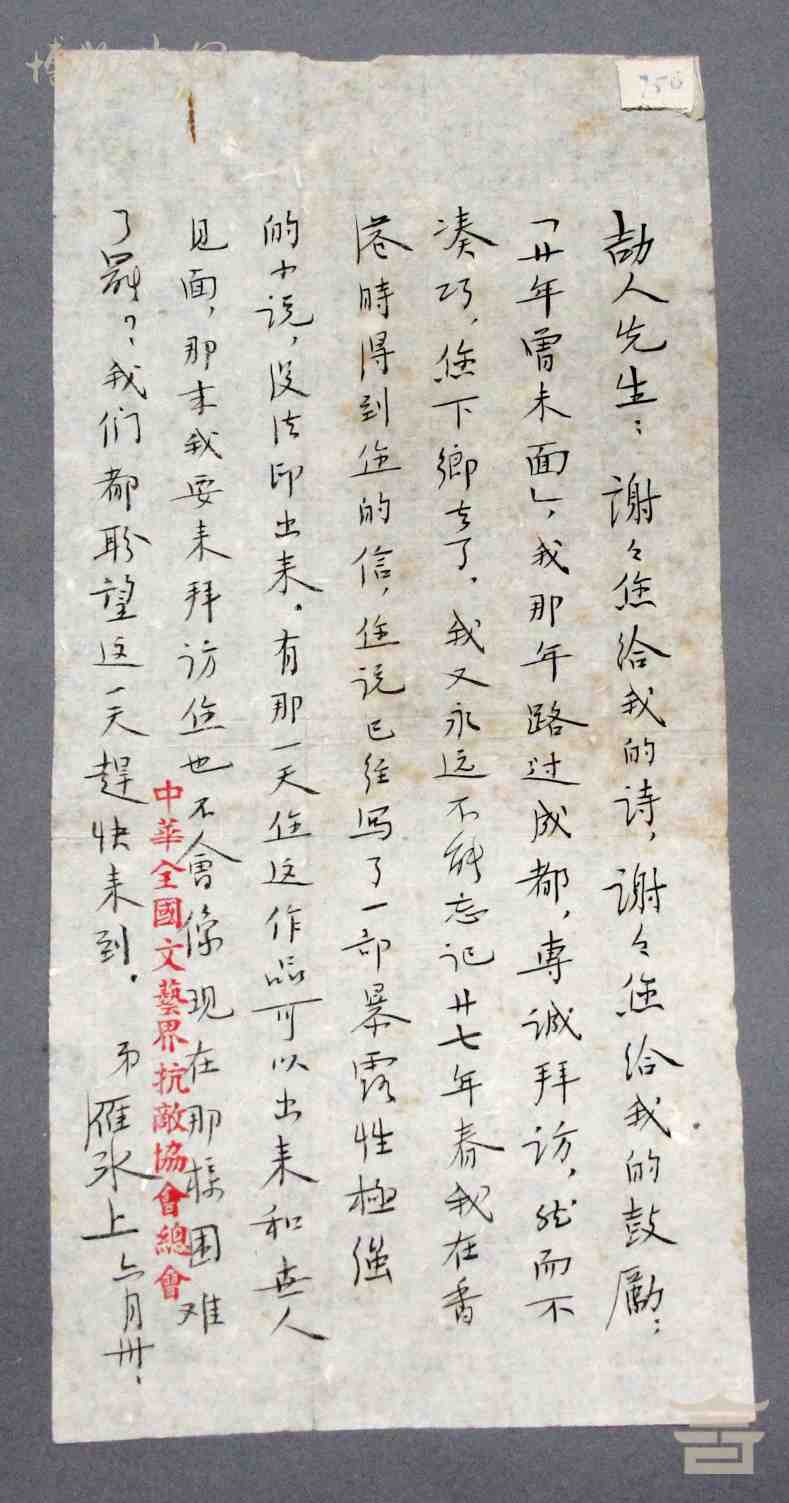 劼人先生：謝々您给我的诗，谢々您给我的鼓勵：
「廿年曾未面」，我那年路过成都，専诚拜访，然而不
凑巧，您下鄉去了，我又永远不能忘记廿七年春我在香
港時得到您的信，您说已经写了一部暴露性極强
的小说，没法印出来。有那一天您这作品可以出来和世人
见面，那末我要来拜访您也不會像现在那様困难
了罷？我们都盼望这一天趕快来到。 弟雁冰上 六月卅.
中華全國文藝界抗敵協會總會
756